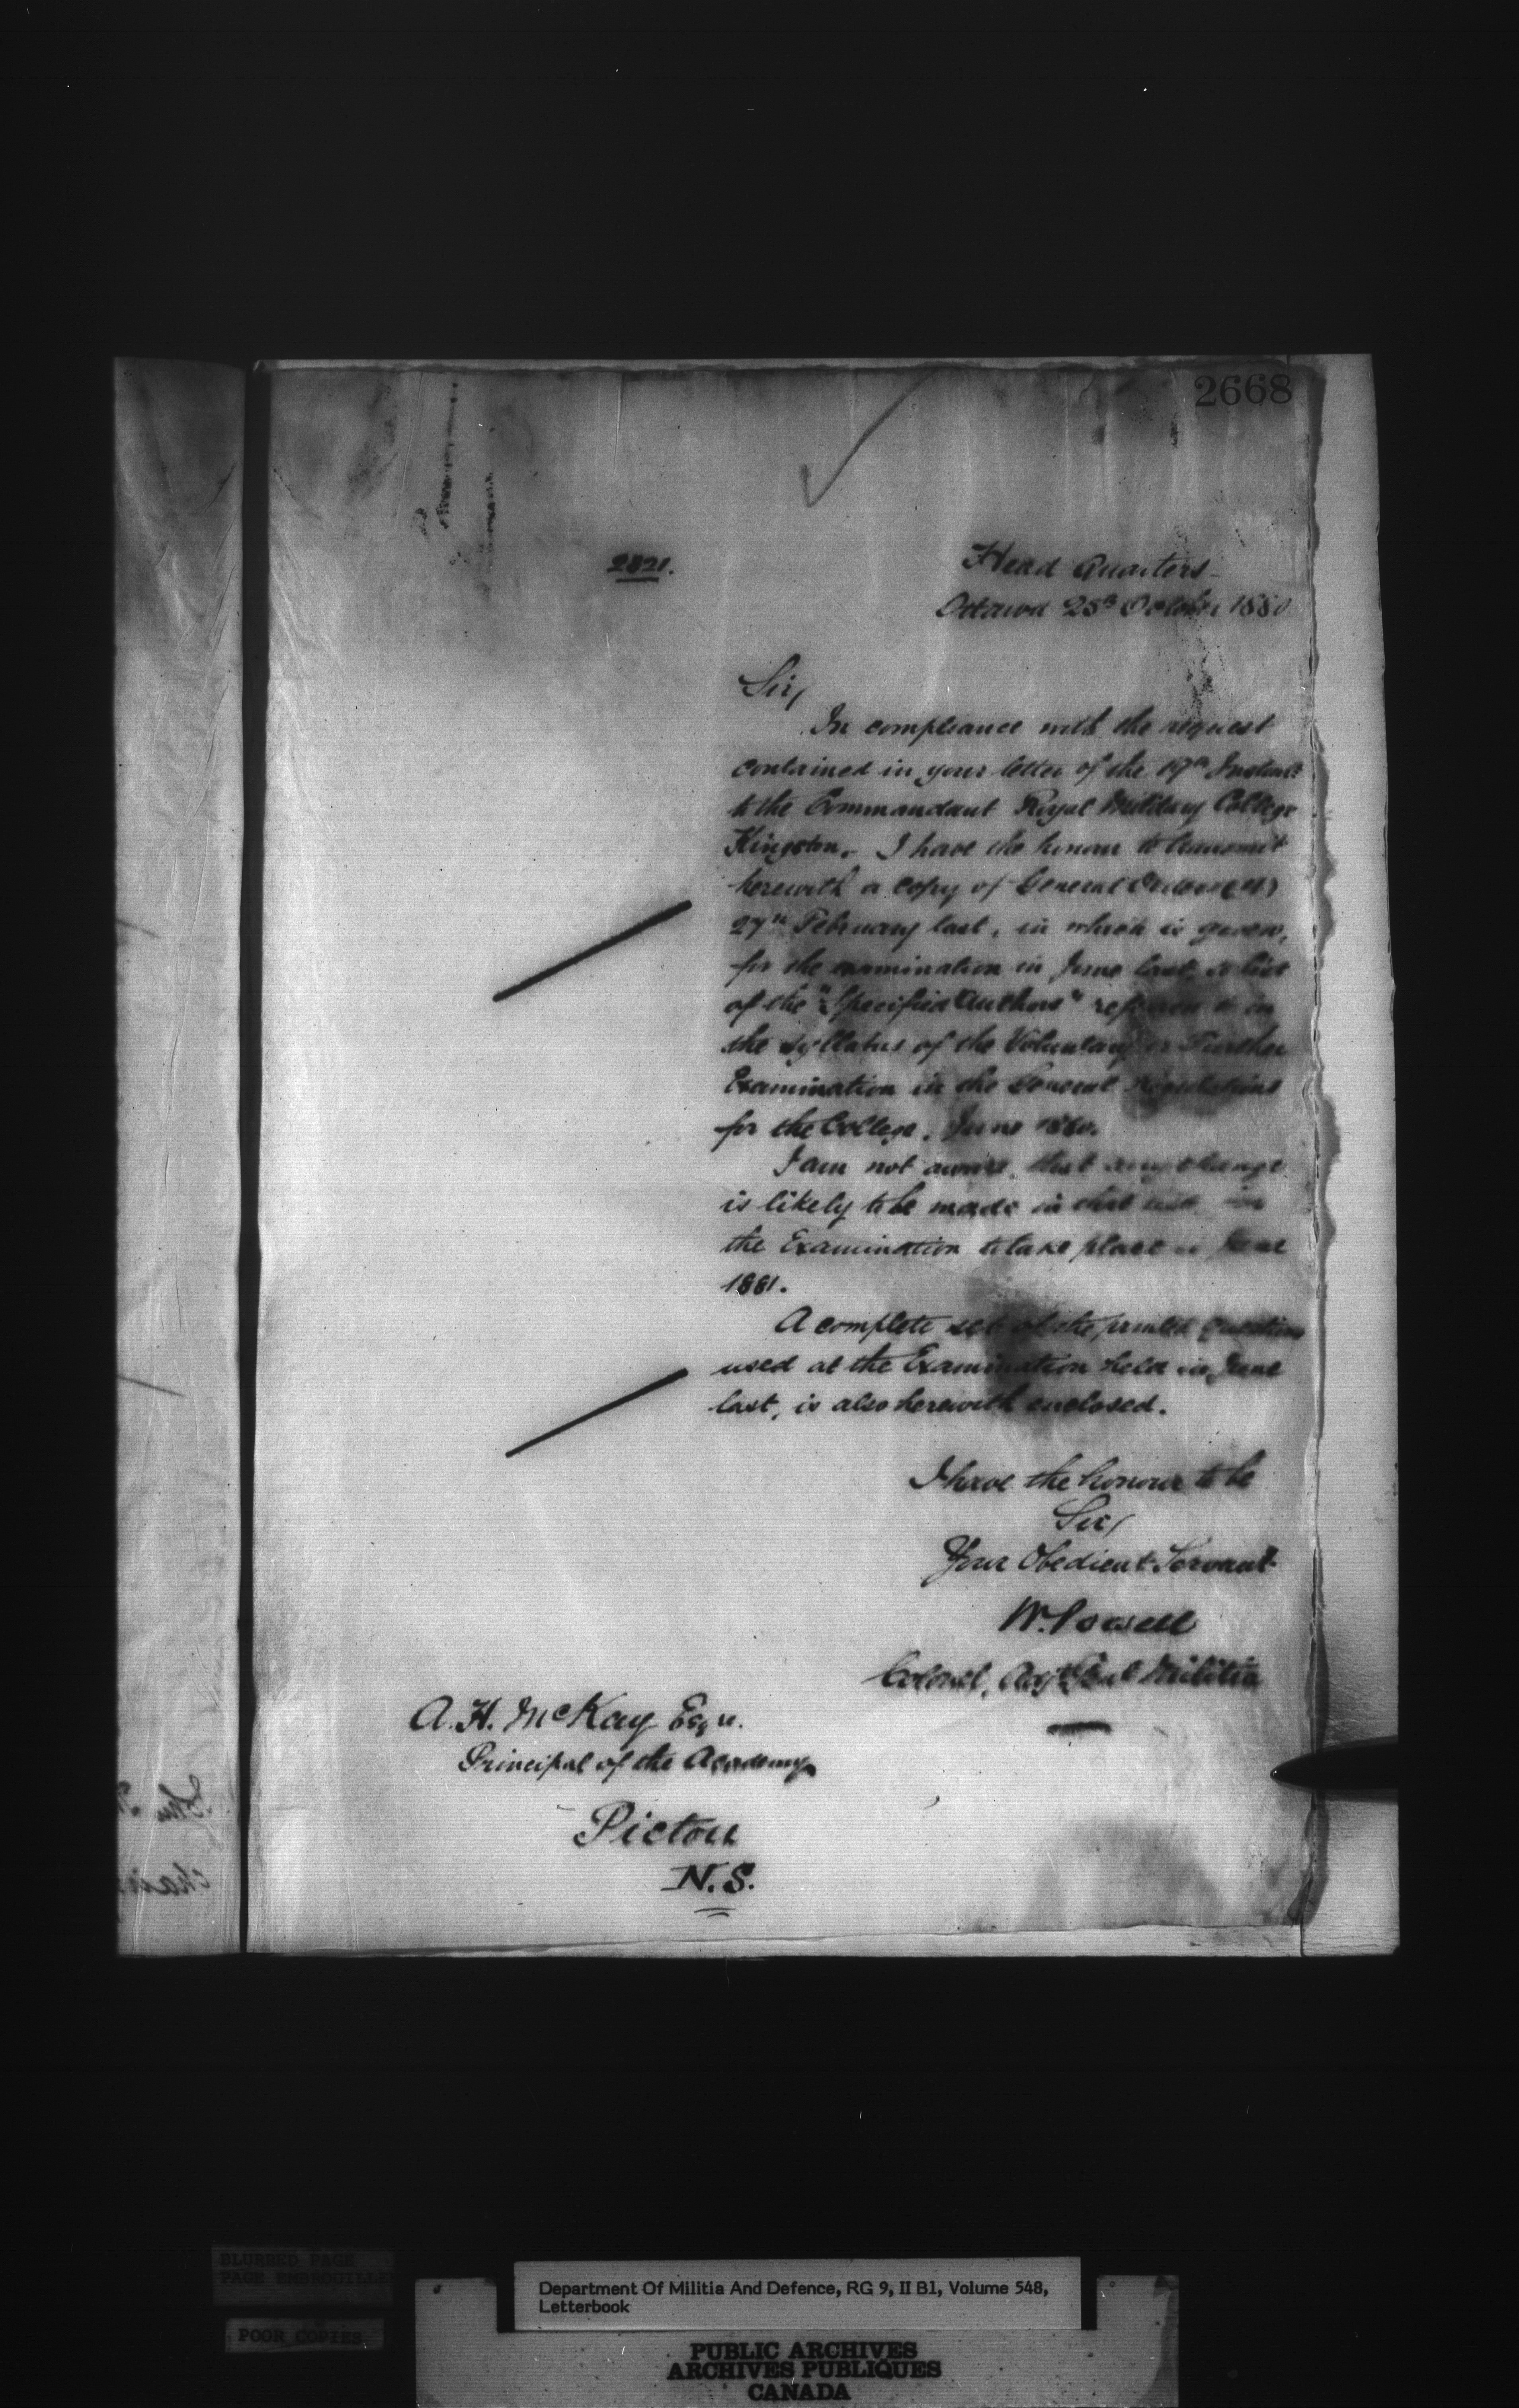 2668
2821.
Head Quarters
Ottawa 25th October 1880
Sir,
In compliance with the request
contained in your letter of the 19th Instant
to the Commandant Royal Military College
Kingston, I have the honour to transmit
herewith a copy of General Orders
27th February last, in which is given,
for the examination in June last, a list
of the "Specified Authors" referred to in
the syllabus of the Voluntary or Further
Examination in the General Regulations
for the College, June 1880.
I am not aware that any change
is likely to be made in that list in
the Examination to take place in June
1881.
A complete set of the printed Questions
used at the Examination held in June
last, is also herewith enclosed.
I have the honour to be
Sir,
Your Obedient Servant
W. Powell
Colonel, Adjt Genl Militia
A. H. McKay Esqre.
Principal of the Academy
Pictou
N.S.
BLURRED PAGE
PAGE EMBROUILLEE
POOR COPIES
Department Of Militia And Defence, RG 9, II B1, Volume 548,
Letterbook
PUBLIC ARCHIVES
ARCHIVES PUBLIQUES
CANADA